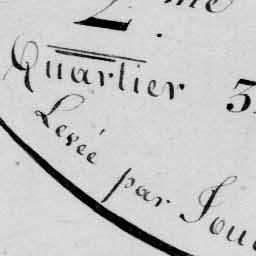 2.me
Quartier 3
Levée par Jou